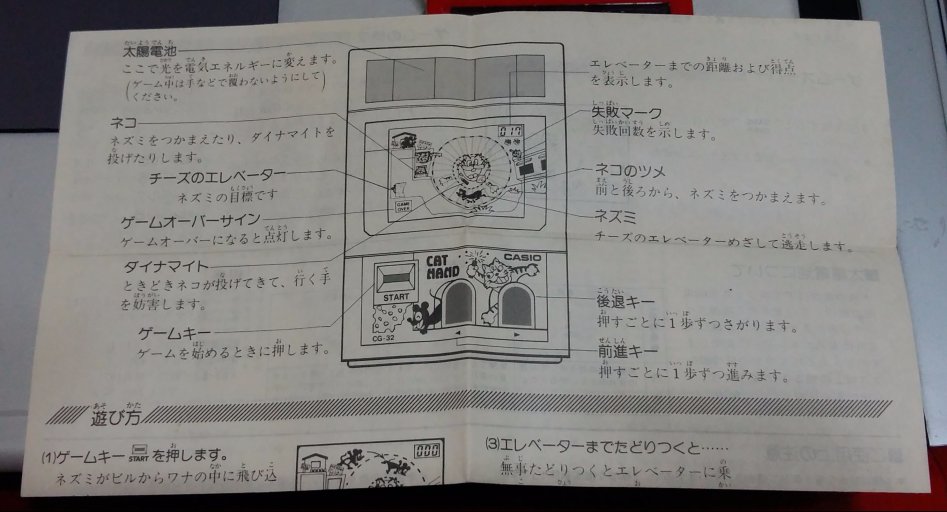 太陽電池
ここで光を電気エネルギーに変えます。
(ゲーム中は手などで覆わないようにして
ください。)
ネコ
ネズミをつかまえたり、ダイナマイトを
投げたりします。
チーズのエレベーター
ネズミの目標です
ゲームオーバーサイン
ゲームオーバーになると点灯します。
ダイナマイト
ときどきネコが投げてきて、行く手
を妨害します。
ゲームキー
ゲームを始めるときに押します。
017
GAME
OVER
CAT
HAND
CASIO
START
CG-32
エレベーターまでの距離および得点
を表示します。
失敗マーク
失敗回数を示します。
ネコのツメ
前と後ろから、ネズミをつかまえます。
ネズミ
チーズのエレベーターめざして逃走します。
後退キー
押すごとに1歩ずつさがります。
前進キー
押すごとに1歩ずつ進みます。
遊び方
(1)ゲームキー START を押します。
ネズミがビルからワナの中に飛び込
000
(3)エレベーターまでたどりつくと……
無事たどりつくとエレベーターに乗